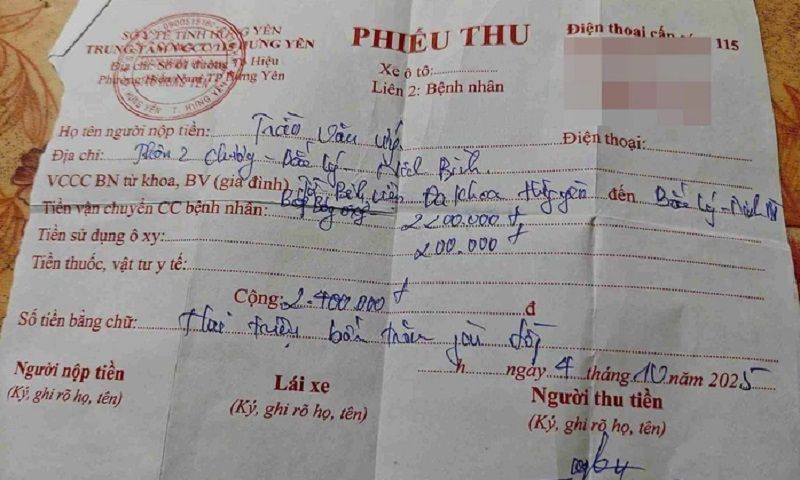 SỞ Y TẾ TỈNH HƯNG YÊN
TRUNG TÂM VCCC 115 HƯNG YÊN
Địa chỉ: Số 01 đường Hiệu
Phường Hiến Nam, TP Hưng Yên
PHIẾU THU
Xe ô tô:
Liên 2: Bệnh nhân
Điện thoại cấp 115
Họ tên người nộp tiền: Trần Văn Điện thoại:
Địa chỉ: Thôn 2 Chương - Bắc Lý - Ninh Bình
VCCC BN từ khoa, BV (gia đình) Bệnh viện Đa khoa Hưng Yên đến Bắc Lý - Ninh
Tiền vận chuyển CC bệnh nhân: 2200.000 đ
Tiền sử dụng ô xy: 200.000 đ
Tiền thuốc, vật tư y tế:
Cộng: 2.400.000 đ đ
Số tiền bằng chữ: Hai triệu bốn trăm đồng
h ngày 4 tháng 10 năm 2025
Người nộp tiền
(Ký, ghi rõ họ, tên)
Lái xe
(Ký, ghi rõ họ, tên)
Người thu tiền
(Ký, ghi rõ họ, tên)